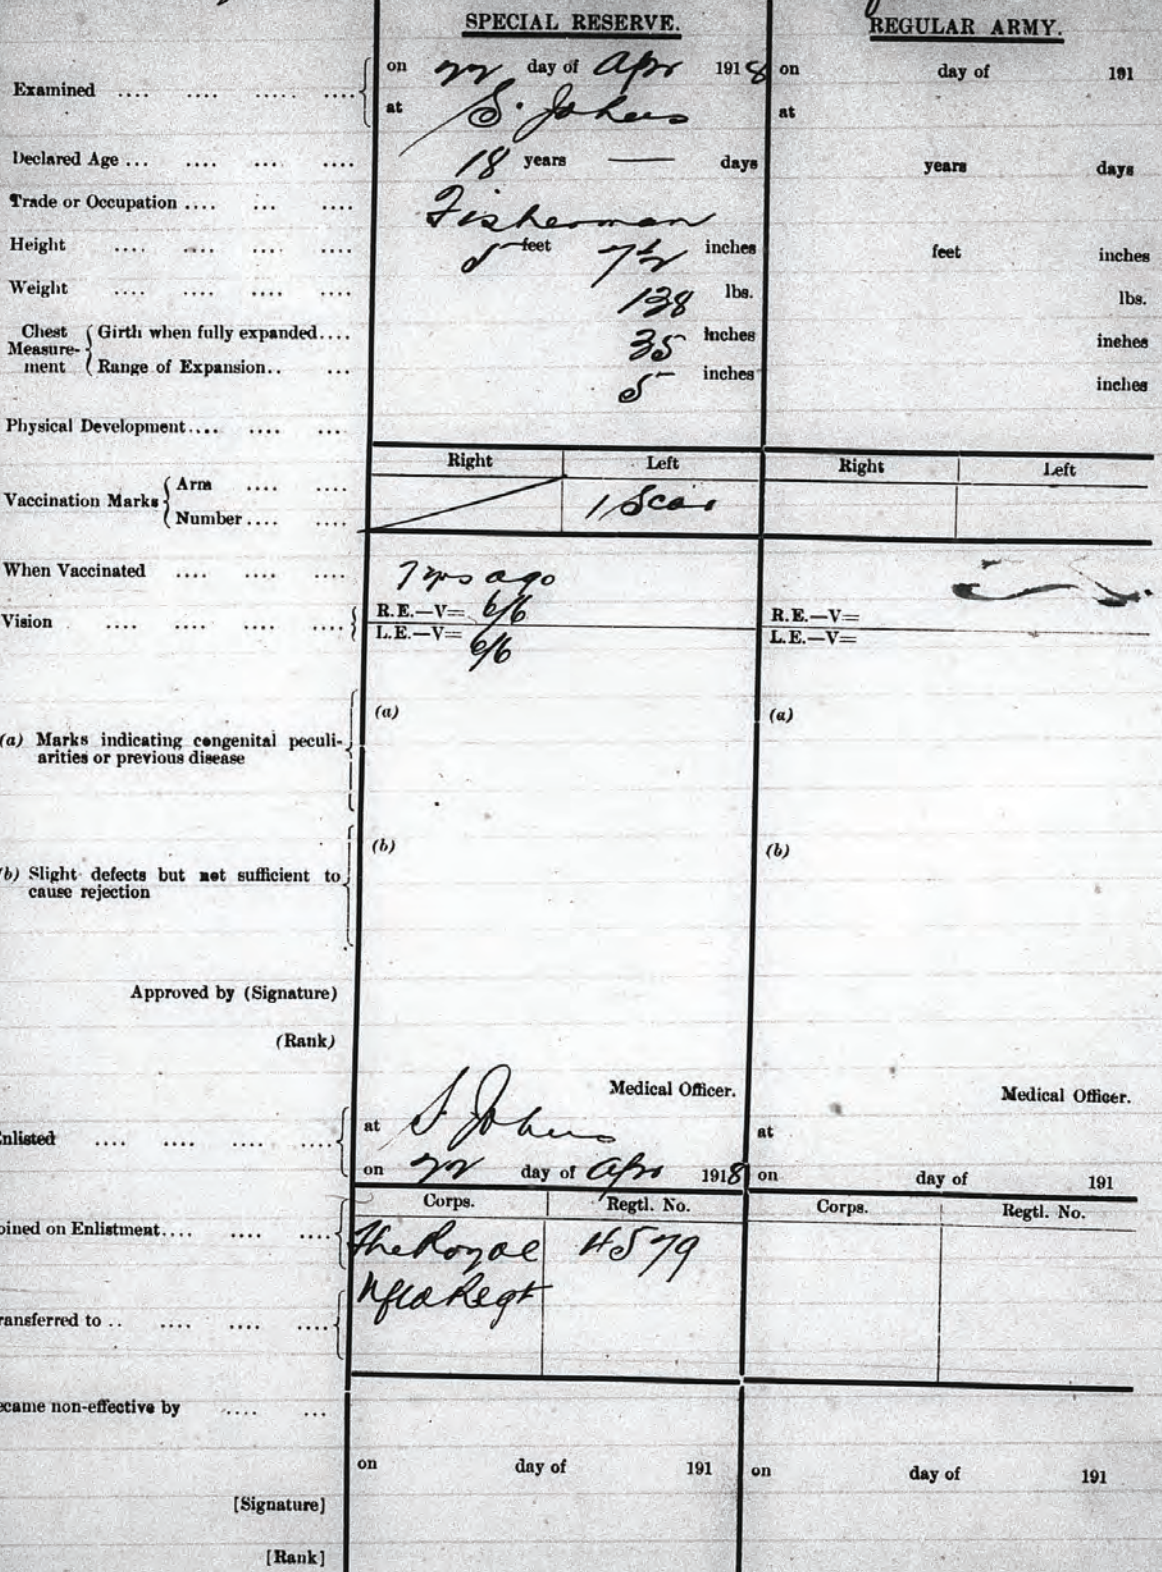 SPECIAL RESERVE. REGULAR ARMY.
Examined .... .... .... .... on 22 day of Apr 1918 on day of 191
at S. Johns at
Declared Age ... .... .... .... 18 years — days years days
Trade or Occupation .... ... .... Fisherman
Height .... .... .... .... 5 feet 7½ inches feet inches
Weight .... .... .... .... 138 lbs. lbs.
Chest Measure-ment Girth when fully expanded.... 35 Inches inches
Range of Expansion.. ... 5 inches inches
Physical Development.... .... ...
Right Left Right Left
Vaccination Marks Arm .... .... 1 Scar
Number .... ....
When Vaccinated .... .... .... 7 yrs ago
Vision .... .... .... .... R.E.—V= 6/6 R.E.—V=
L.E.—V= 6/6 L.E.—V=
(a) (a)
(a) Marks indicating congenital peculi-
arities or previous disease
(b) (b)
(b) Slight defects but not sufficient to
cause rejection
Approved by (Signature)
(Rank)
Medical Officer. Medical Officer.
nlisted .... .... .... .... at S. Johns at
on 22 day of Apr 1918 on day of 191
Corps. Regtl. No. Corps. Regtl. No.
oined on Enlistment.... .... .... The Royal 4579
Nfld Regt
ransferred to .. .... .... ....
ecame non-effective by .... ...
on day of 191 on day of 191
[Signature]
[Rank]